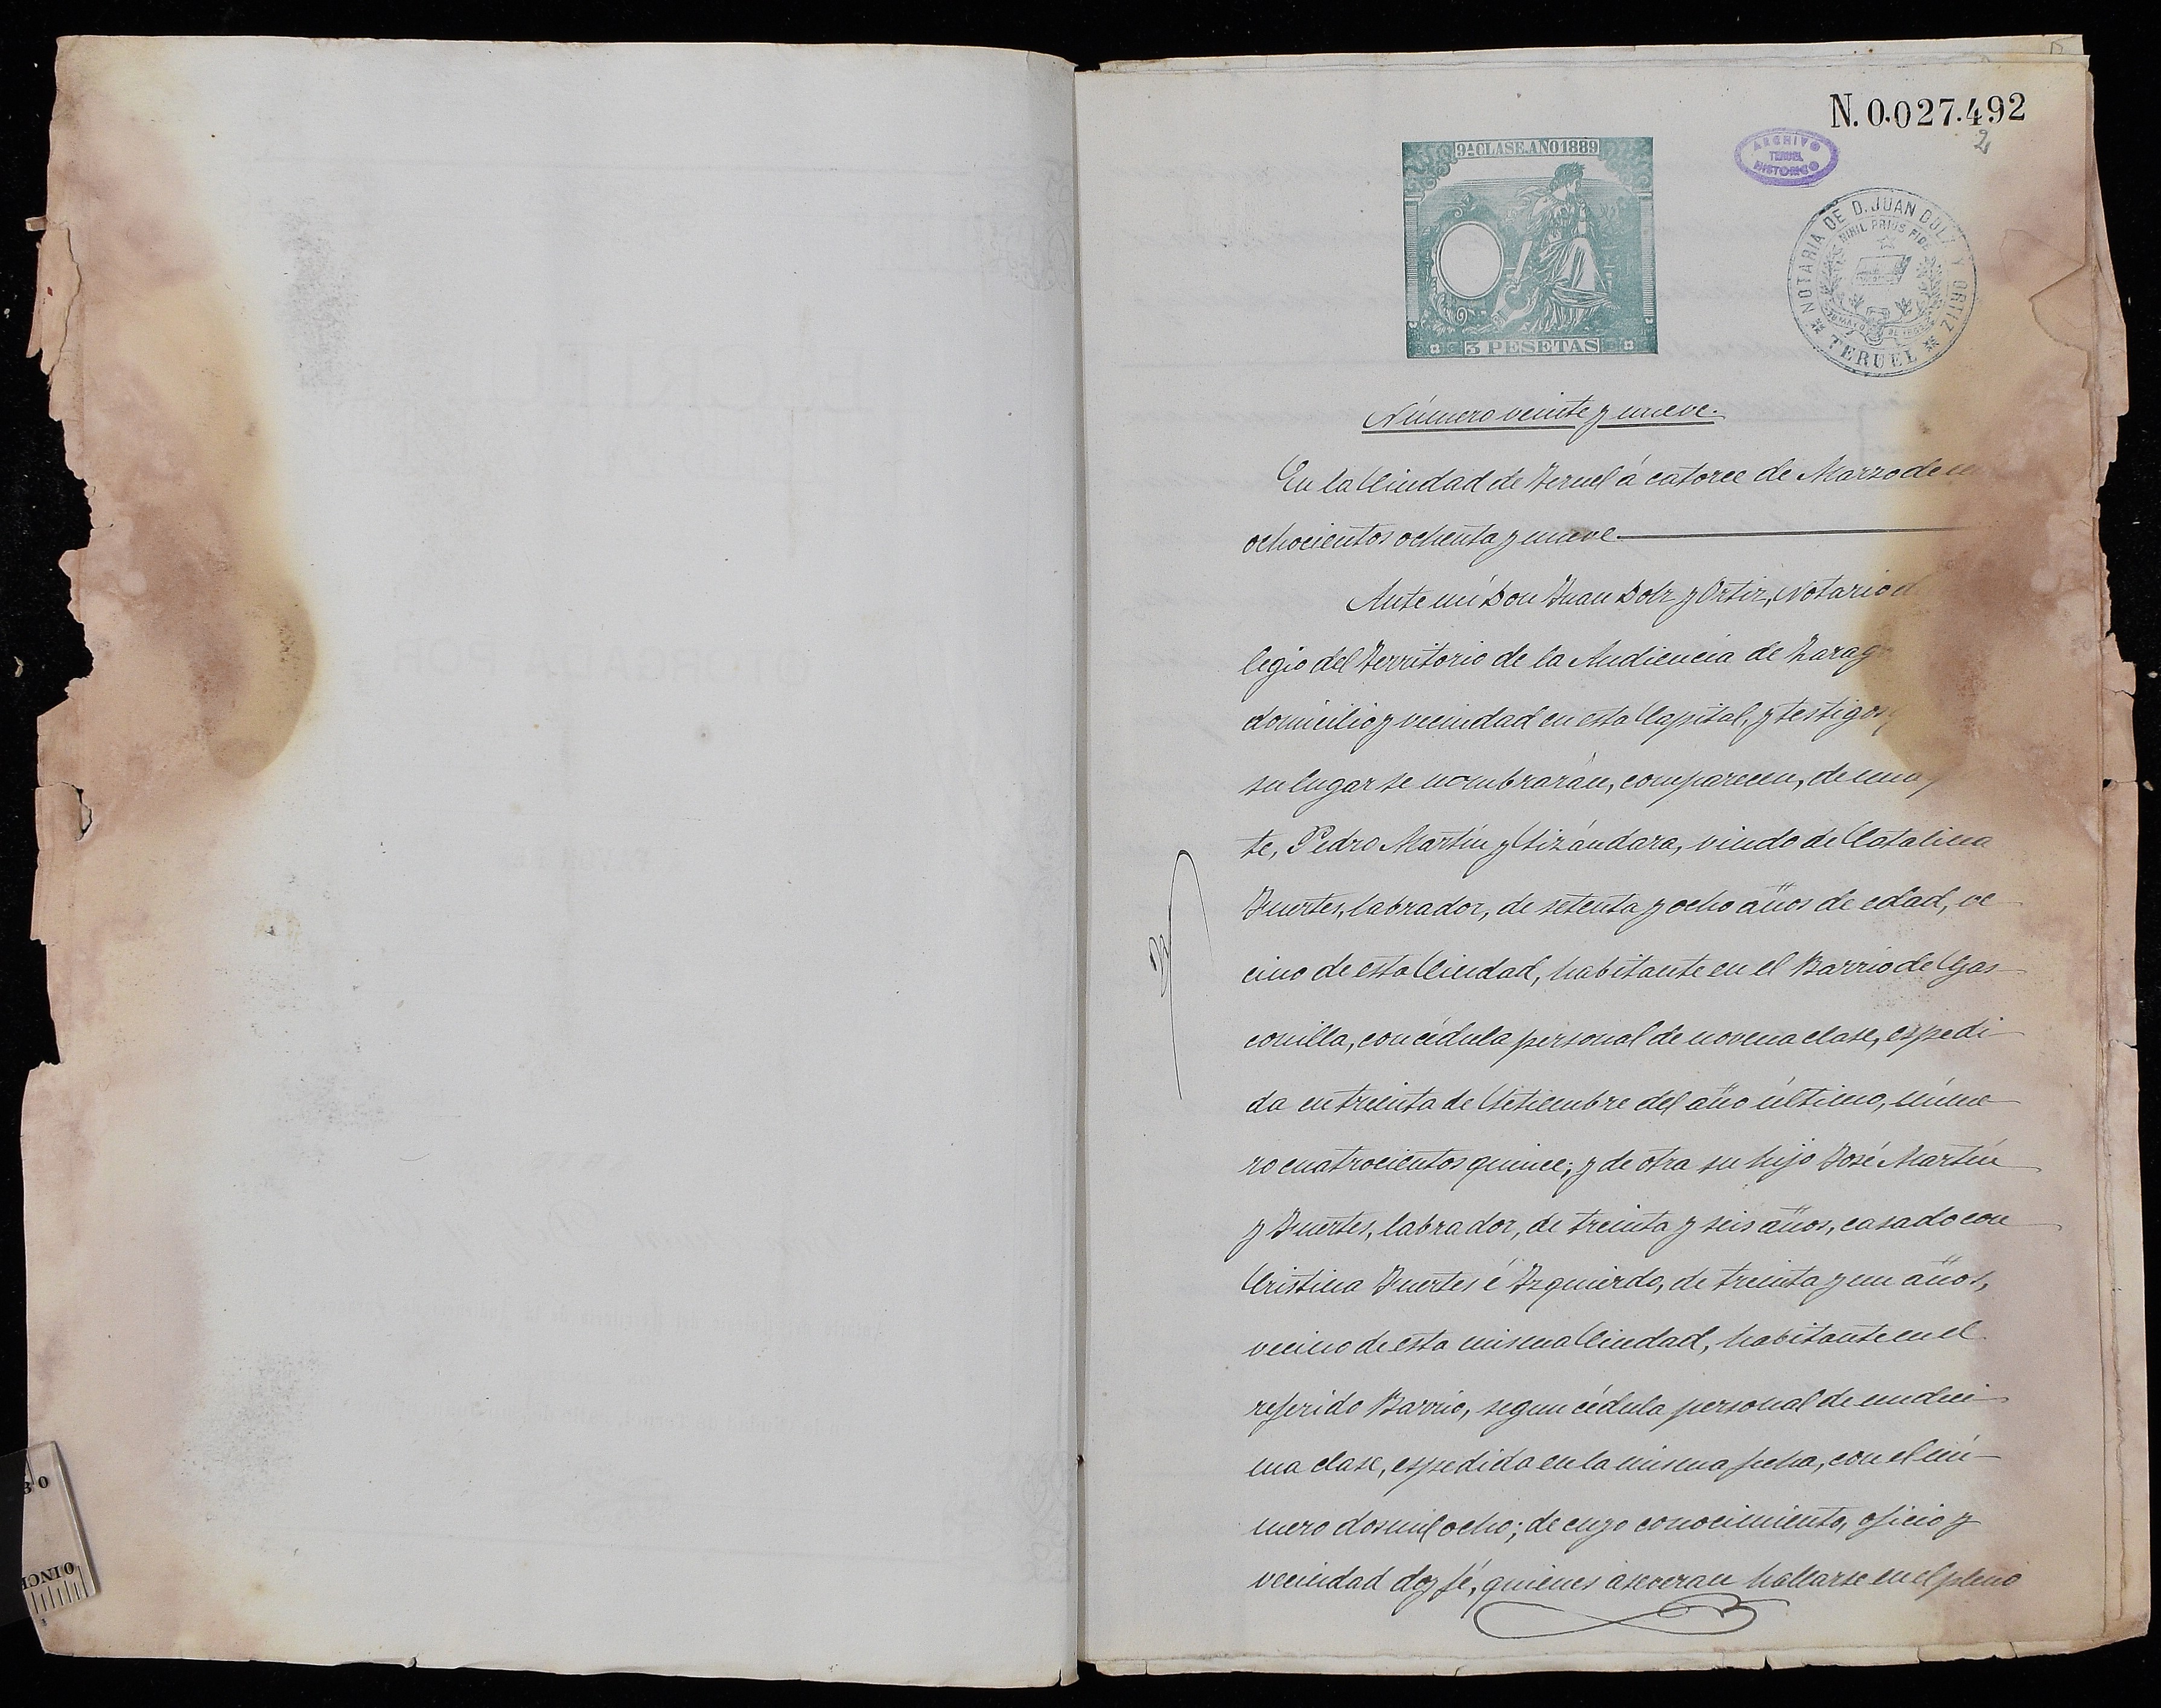 N. 0.027.492
2
9ª CLASE. AÑO 1889
3 PESETAS
ARCHIVO
TERUEL
HISTORICO
NOTARIA DE D. JUAN DOLZ Y ORTIZ
NIHIL PRIUS FIDE
TERUEL
Número veinte y nueve.
En la Ciudad de Teruel á catorce de Marzo de
ochocientos ochenta y nueve
Ante mí Don Juan Dolz y Ortiz, Notario d
legio del Territorio de la Audiencia de Zarag
domicilio y vecindad en esta Capital, y testigos
su lugar se nombrarán, comparecen, de una
te, Pedro Martín y Sizándara, viudo de Catalina
Fuertes, labrador, de setenta y ocho años de edad, ve
cino de esta Ciudad, habitante en el Barrio de Gas
conilla, con cédula personal de novena clase, espedi
da en treinta de Setiembre del año último, núme
ro cuatrocientos quince; y de otra su hijo José Martín
y Fuertes, labrador, de treinta y seis años, casado con
Cristina Fuertes é Izquierdo, de treinta y un años,
vecino de esta misma Ciudad, habitante en el
referido Barrio, segun cédula personal de undéci
ma clase, espedida en la misma fecha, con el nú
mero dos mil ocho; de cuyo conocimiento, oficio y
vecindad doy fé, quienes aseveran hallarse en el pleno
30
0 INCH